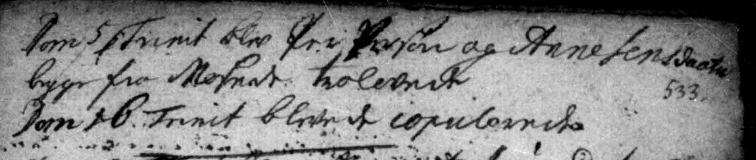 Dom 5 p Trinit blev Per Persøn og Anne Jensdaater
byge fra trolovede
533.
Dom 16 Trinit blevede copulerede